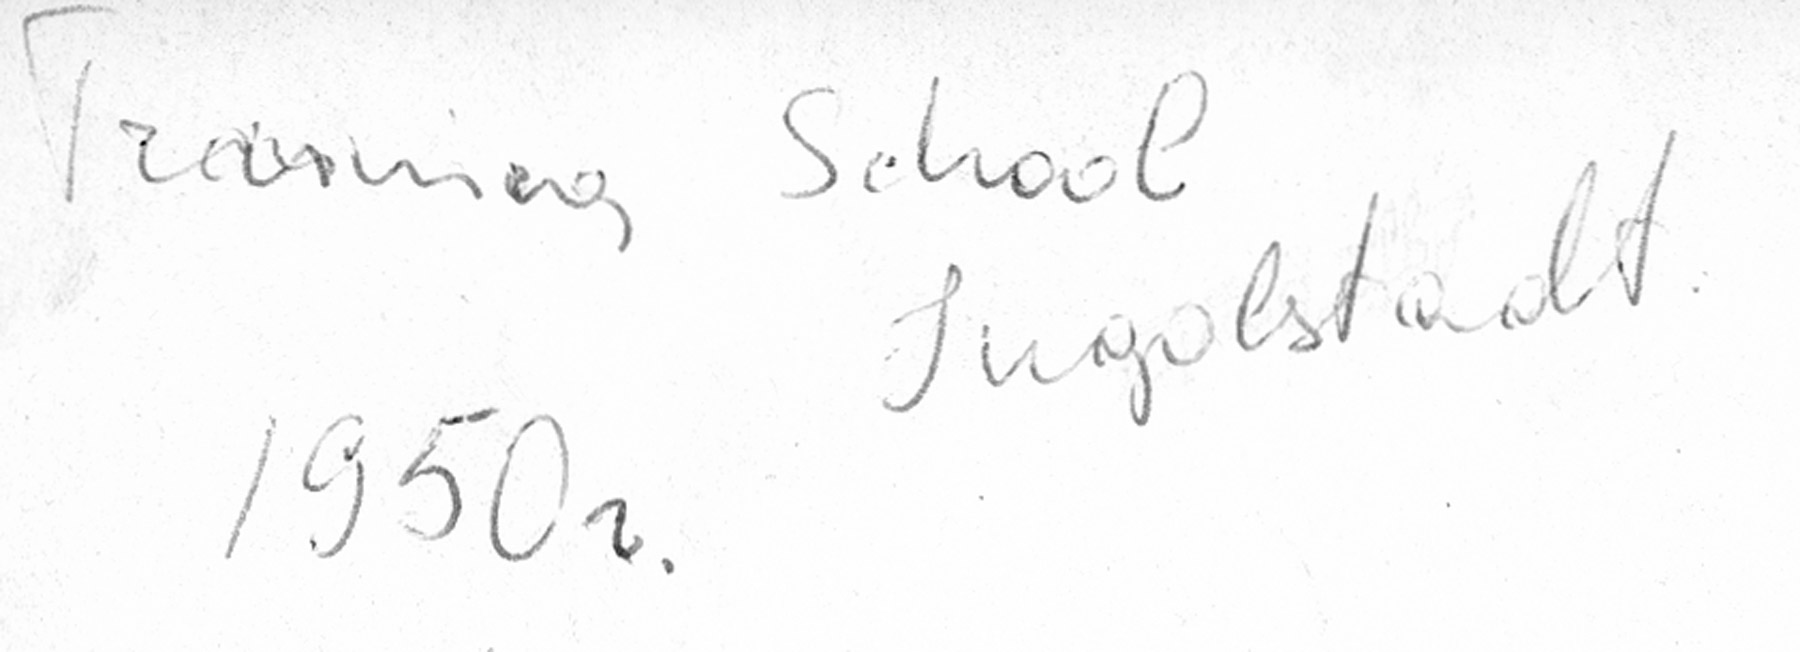 Training School
Ingolstadt.
1950г.